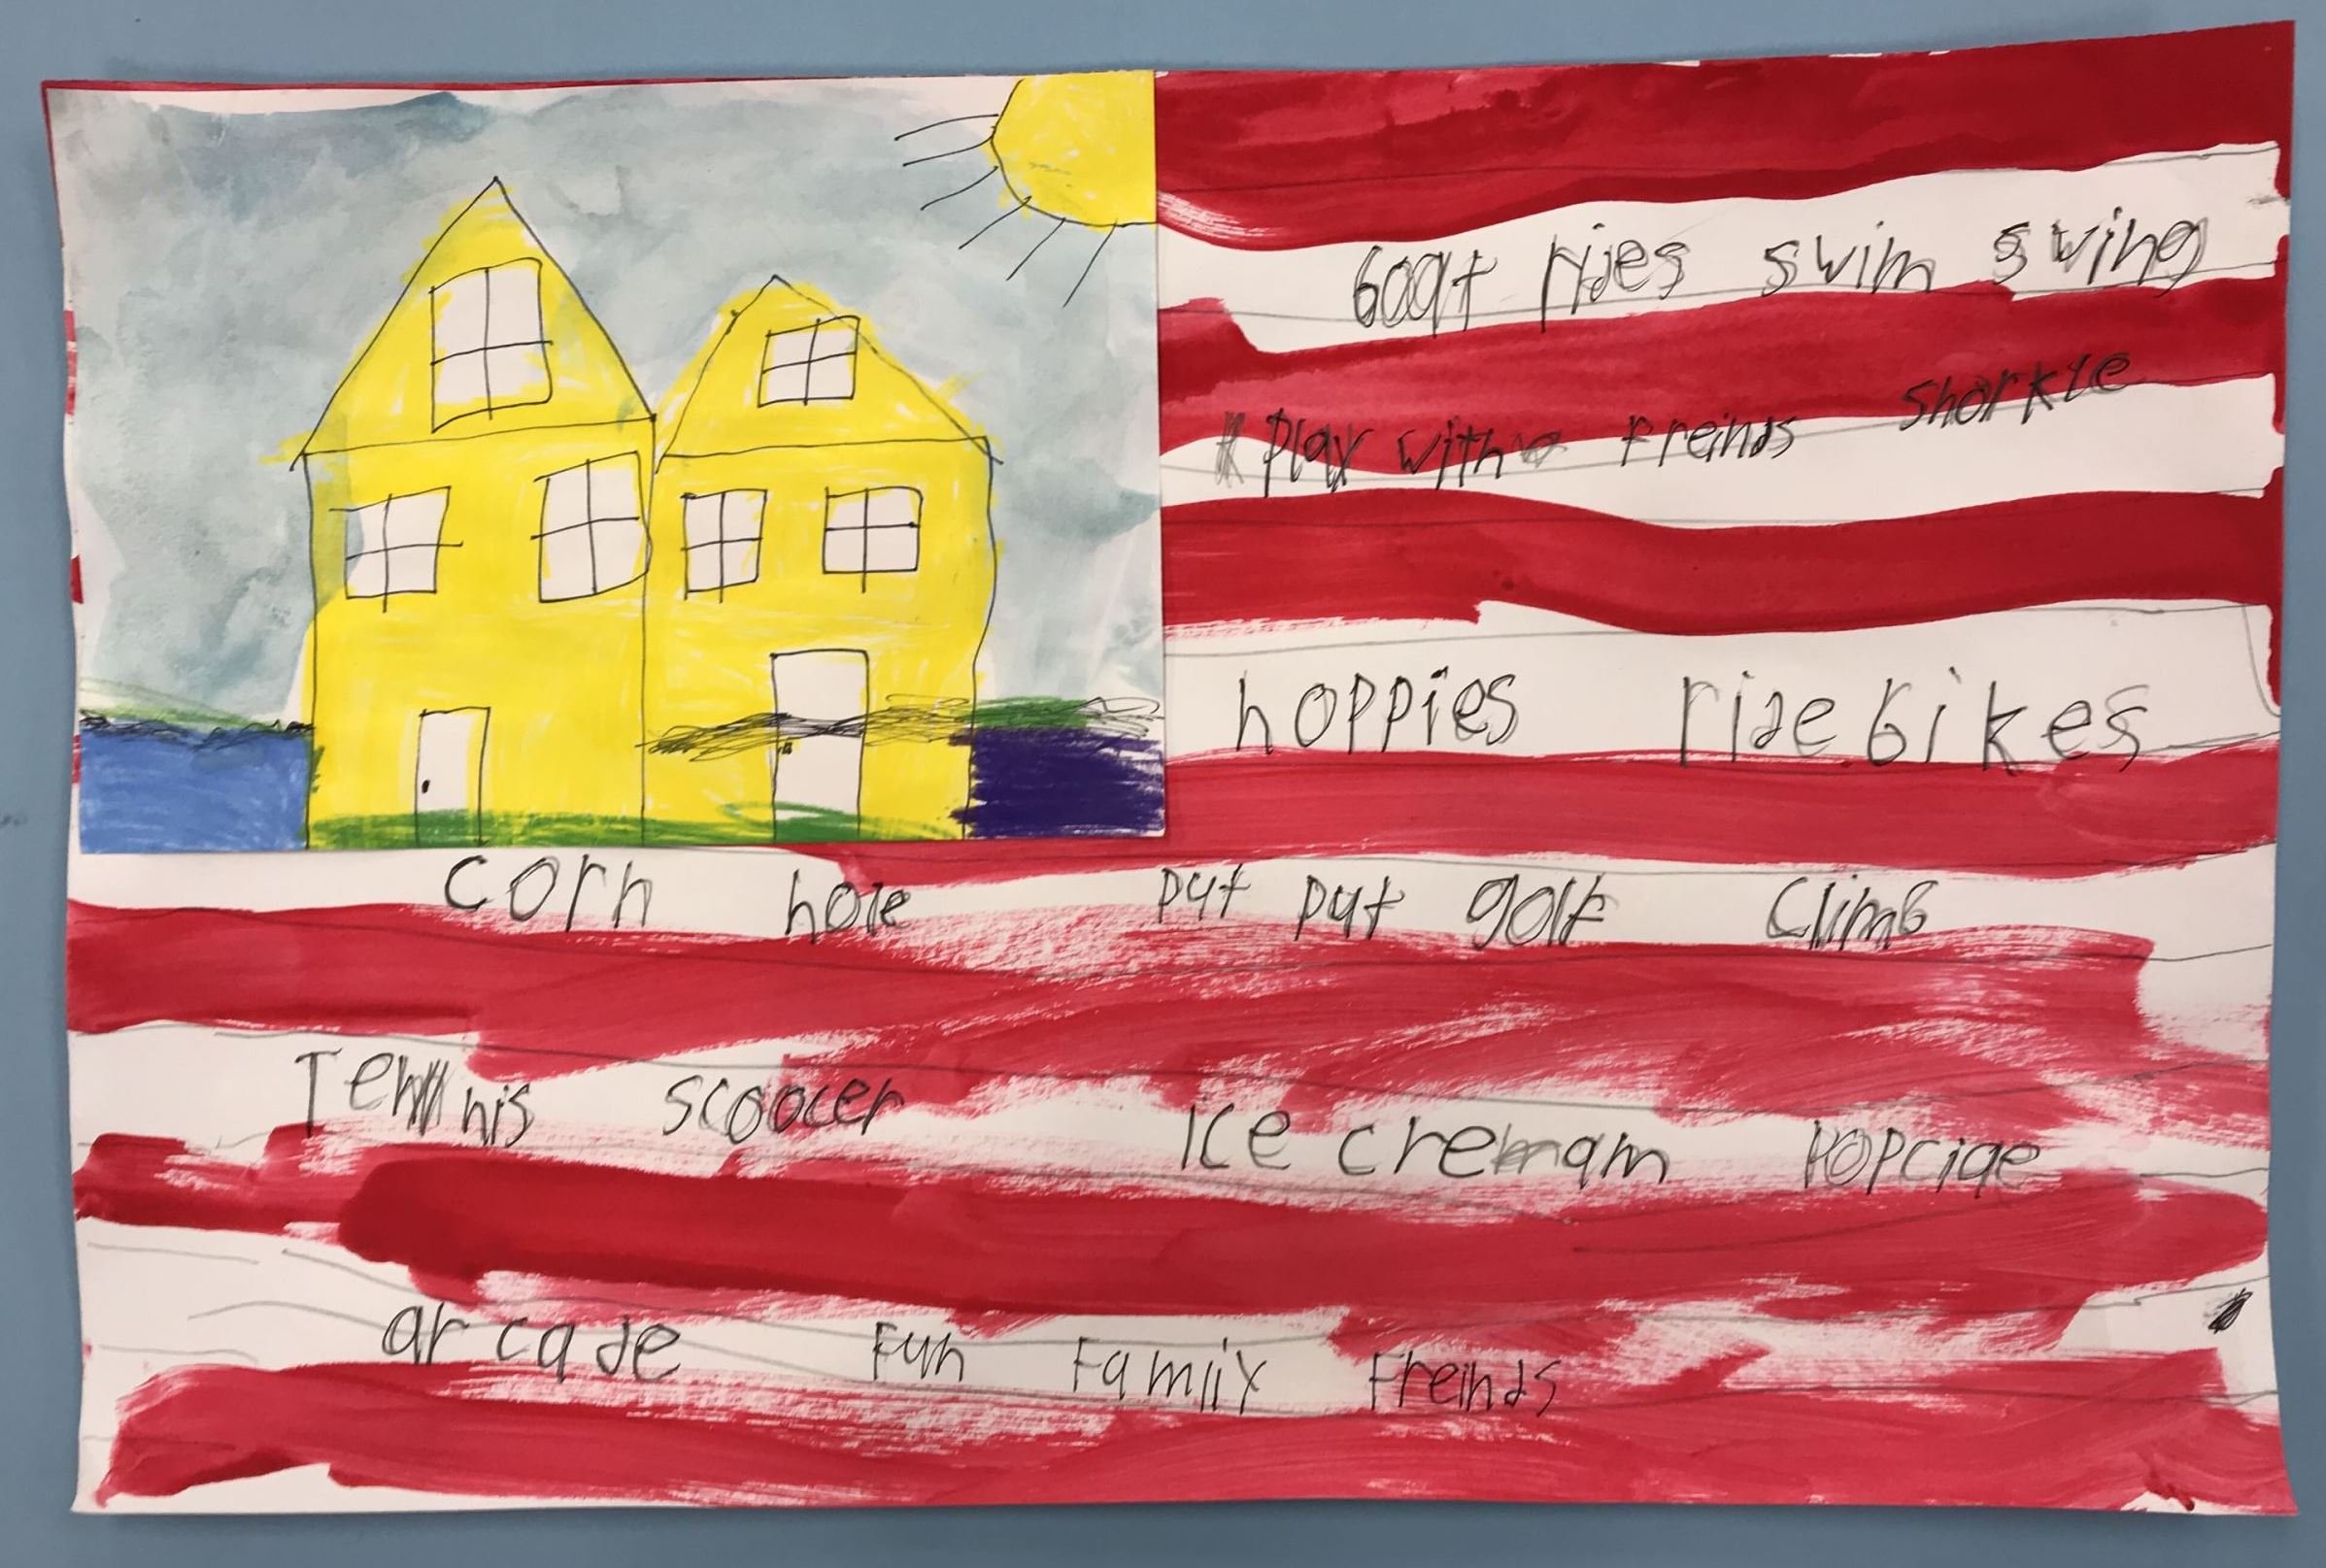 boat rides swim swing
play with freinds shorkle
hoppies ride bikes
corn hole put put golf climb
Tennis scoocer ice cream
arcade Fun Family Freinds